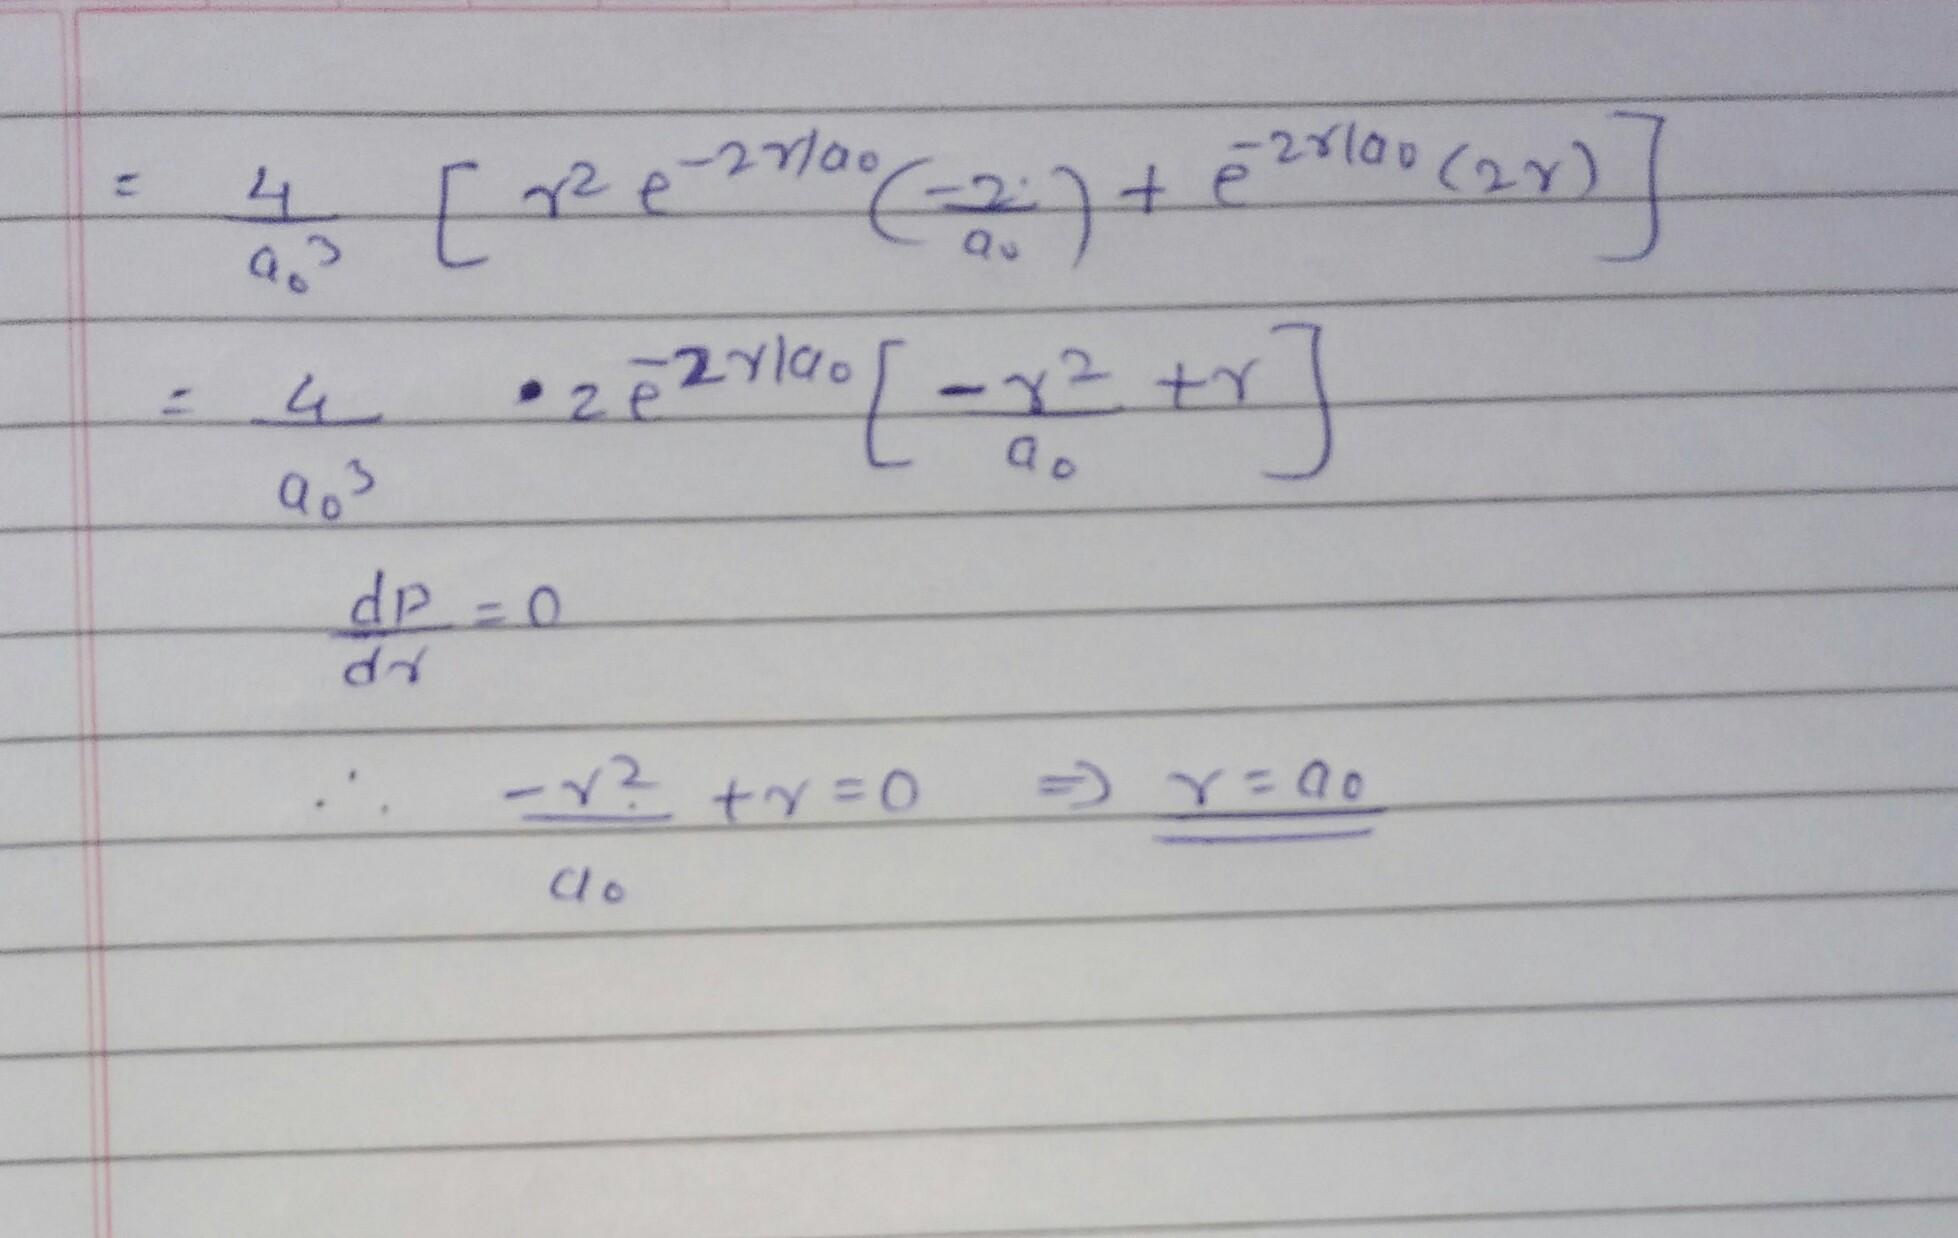 = 4/a₀³ [ r² e^(-2r/a₀) (-2/a₀) + e^(-2r/a₀) (2r) ]
= 4/a₀³ · 2 e^(-2r/a₀) [ -r²/a₀ + r ]
dP/dr = 0
∴ -r²/a₀ + r = 0 ⇒ r = a₀